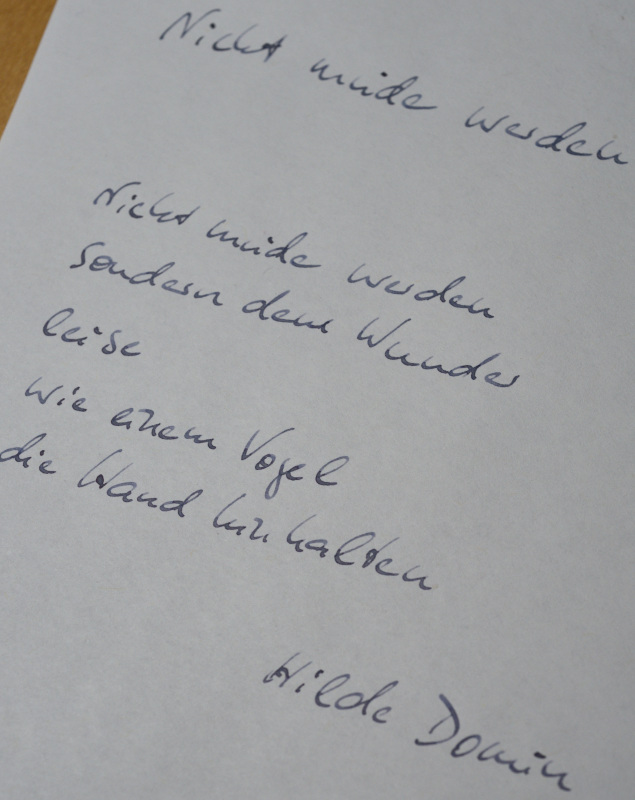 Nicht müde werden
Nicht müde werden
sondern dem Wunder
leise
wie einem Vogel
die Hand hinhalten
Hilde Domin